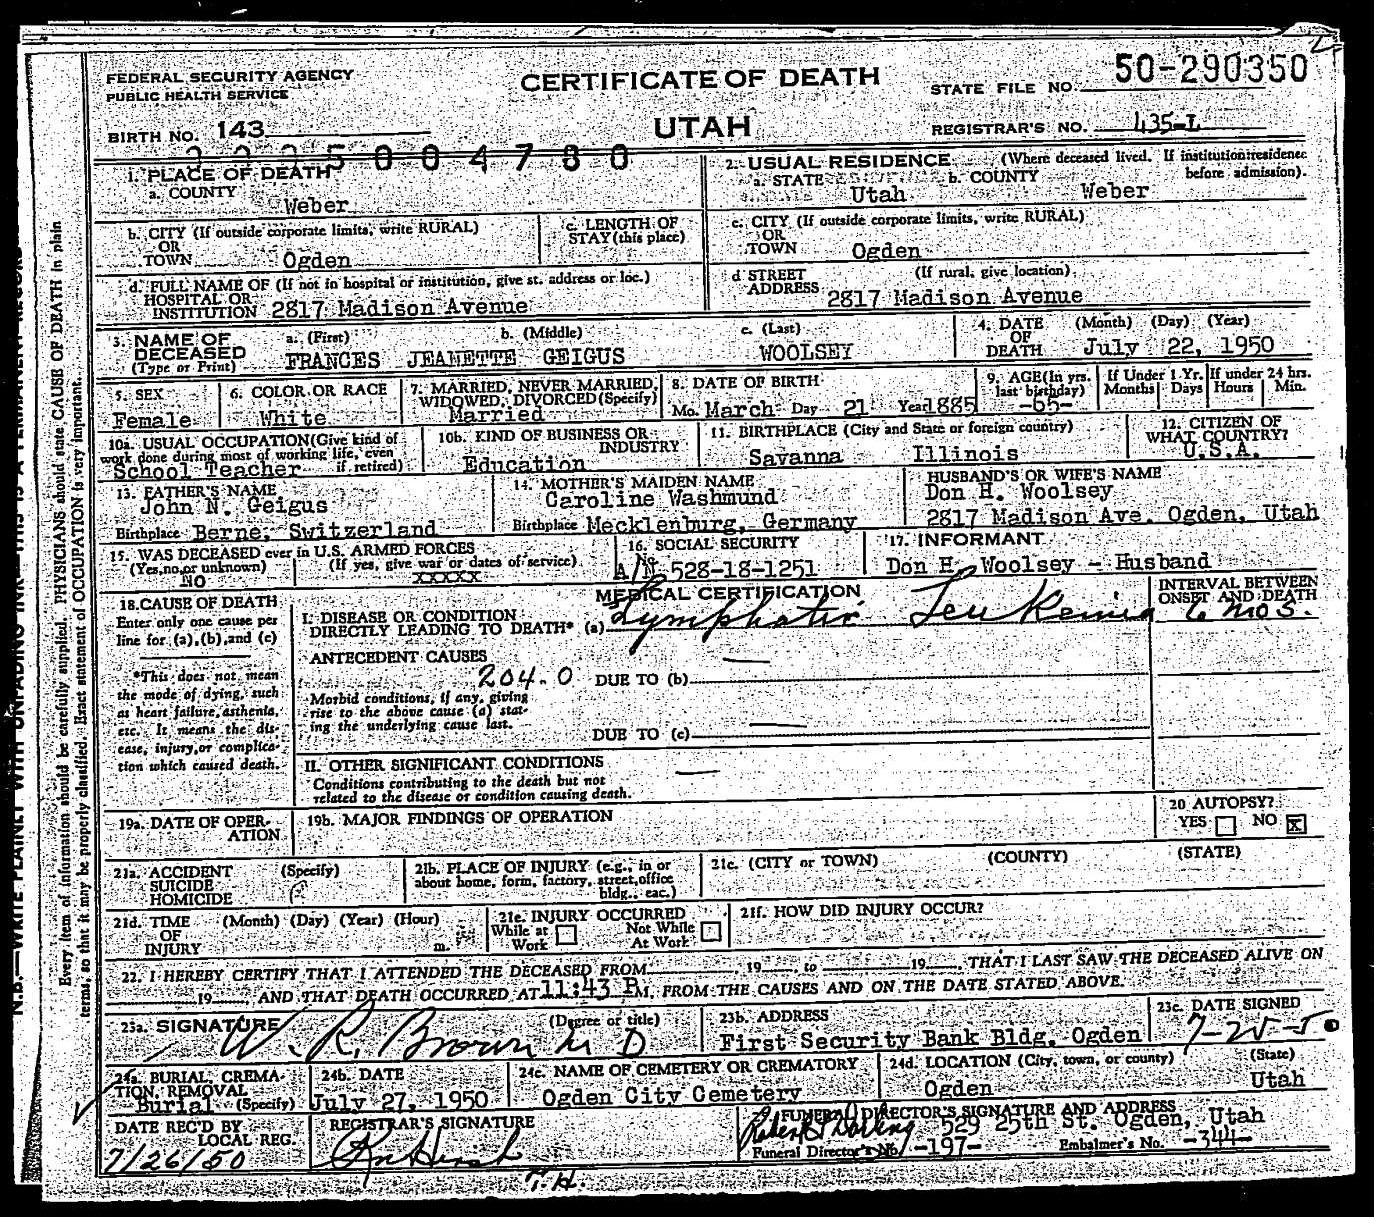 FEDERAL SECURITY AGENCY
PUBLIC HEALTH SERVICE
CERTIFICATE OF DEATH
UTAH
STATE FILE NO. 50-290350
BIRTH NO. 143
REGISTRAR'S NO. 435-L
1. PLACE OF DEATH
a. COUNTY
Weber
2. USUAL RESIDENCE (Where deceased lived. If institution: residence before admission).
a. STATE Utah b. COUNTY Weber
b. CITY (If outside corporate limits, write RURAL)
OR
TOWN Ogden
c. LENGTH OF
STAY (this place)
c. CITY (If outside corporate limits, write RURAL)
OR
TOWN Ogden
d. FULL NAME OF (If not in hospital or institution, give st. address or loc.)
HOSPITAL OR
INSTITUTION 2817 Madison Avenue
d STREET (If rural, give location)
ADDRESS 2817 Madison Avenue
3. NAME OF
DECEASED
(Type or Print)
a. (First) b. (Middle) c. (Last)
FRANCES JEANETTE GEIGUS WOOLSEY
4. DATE (Month) (Day) (Year)
OF
DEATH July 22, 1950
5. SEX
Female
6. COLOR OR RACE
White
7. MARRIED, NEVER MARRIED,
WIDOWED, DIVORCED (Specify)
Married
8. DATE OF BIRTH
Mo. March Day 21 Year 1885
9. AGE (In yrs.
last birthday)
-65-
If Under 1 Yr.
Months Days
If under 24 hrs.
Hours Min.
10a. USUAL OCCUPATION (Give kind of
work done during most of working life, even
if retired)
School Teacher
10b. KIND OF BUSINESS OR
INDUSTRY
Education
11. BIRTHPLACE (City and State or foreign country)
Savanna Illinois
12. CITIZEN OF
WHAT COUNTRY?
U.S.A.
13. FATHER'S NAME
John N. Geigus
Birthplace Berne, Switzerland
14. MOTHER'S MAIDEN NAME
Caroline Washmund
Birthplace Mecklenburg, Germany
HUSBAND'S OR WIFE'S NAME
Don H. Woolsey
2817 Madison Ave. Ogden, Utah
15. WAS DECEASED ever in U.S. ARMED FORCES
(Yes, no, or unknown) (If yes, give war or dates of service)
No xxxxx
16. SOCIAL SECURITY
No.
A/N 528-18-1251
17. INFORMANT
Don H. Woolsey - Husband
18. CAUSE OF DEATH
Enter only one cause per
line for (a), (b), and (c)
*This does not mean
the mode of dying, such
as heart failure, asthenia,
etc. It means the dis-
ease, injury, or complica-
tion which caused death.
MEDICAL CERTIFICATION
INTERVAL BETWEEN
ONSET AND DEATH
I. DISEASE OR CONDITION
DIRECTLY LEADING TO DEATH* (a) Lymphatic Leukemia 6 mos.
ANTECEDENT CAUSES
204.0 DUE TO (b)
Morbid conditions, if any, giving
rise to the above cause (a) stat-
ing the underlying cause last.
DUE TO (c)
II. OTHER SIGNIFICANT CONDITIONS
Conditions contributing to the death but not
related to the disease or condition causing death.
19a. DATE OF OPER-
ATION
19b. MAJOR FINDINGS OF OPERATION
20 AUTOPSY?
YES NO X
21a. ACCIDENT (Specify)
SUICIDE
HOMICIDE
21b. PLACE OF INJURY (e.g., in or
about home, form, factory, street, office
bldg., eac.)
21c. (CITY or TOWN) (COUNTY) (STATE)
21d. TIME (Month) (Day) (Year) (Hour)
OF
INJURY m.
21e. INJURY OCCURRED
While at Work Not While At Work
21f. HOW DID INJURY OCCUR?
22. I HEREBY CERTIFY THAT I ATTENDED THE DECEASED FROM 19 , to 19 , THAT I LAST SAW THE DECEASED ALIVE ON
19 , AND THAT DEATH OCCURRED AT 11:43 P M. FROM THE CAUSES AND ON THE DATE STATED ABOVE.
23a. SIGNATURE (Degree or title)
W. R. Brown M D
23b. ADDRESS
First Security Bank Bldg. Ogden
23c. DATE SIGNED
7-25-50
24a. BURIAL, CREMA-
TION, REMOVAL
Burial (Specify)
24b. DATE
July 27, 1950
24c. NAME OF CEMETERY OR CREMATORY
Ogden City Cemetery
24d. LOCATION (City, town, or county) (State)
Ogden Utah
DATE REC'D BY
LOCAL REG.
7/26/50
REGISTRAR'S SIGNATURE
T.H.
FUNERAL DIRECTOR'S SIGNATURE AND ADDRESS
529 25th St. Ogden, Utah
Funeral Director's No. -197- Embalmer's No. -344-
N.B.—WRITE PLAINLY WITH UNFADING INK
Every item of information should be carefully supplied. PHYSICIANS should state CAUSE OF DEATH in plain
terms, so that it may be properly classified. Exact statement of OCCUPATION is very important.